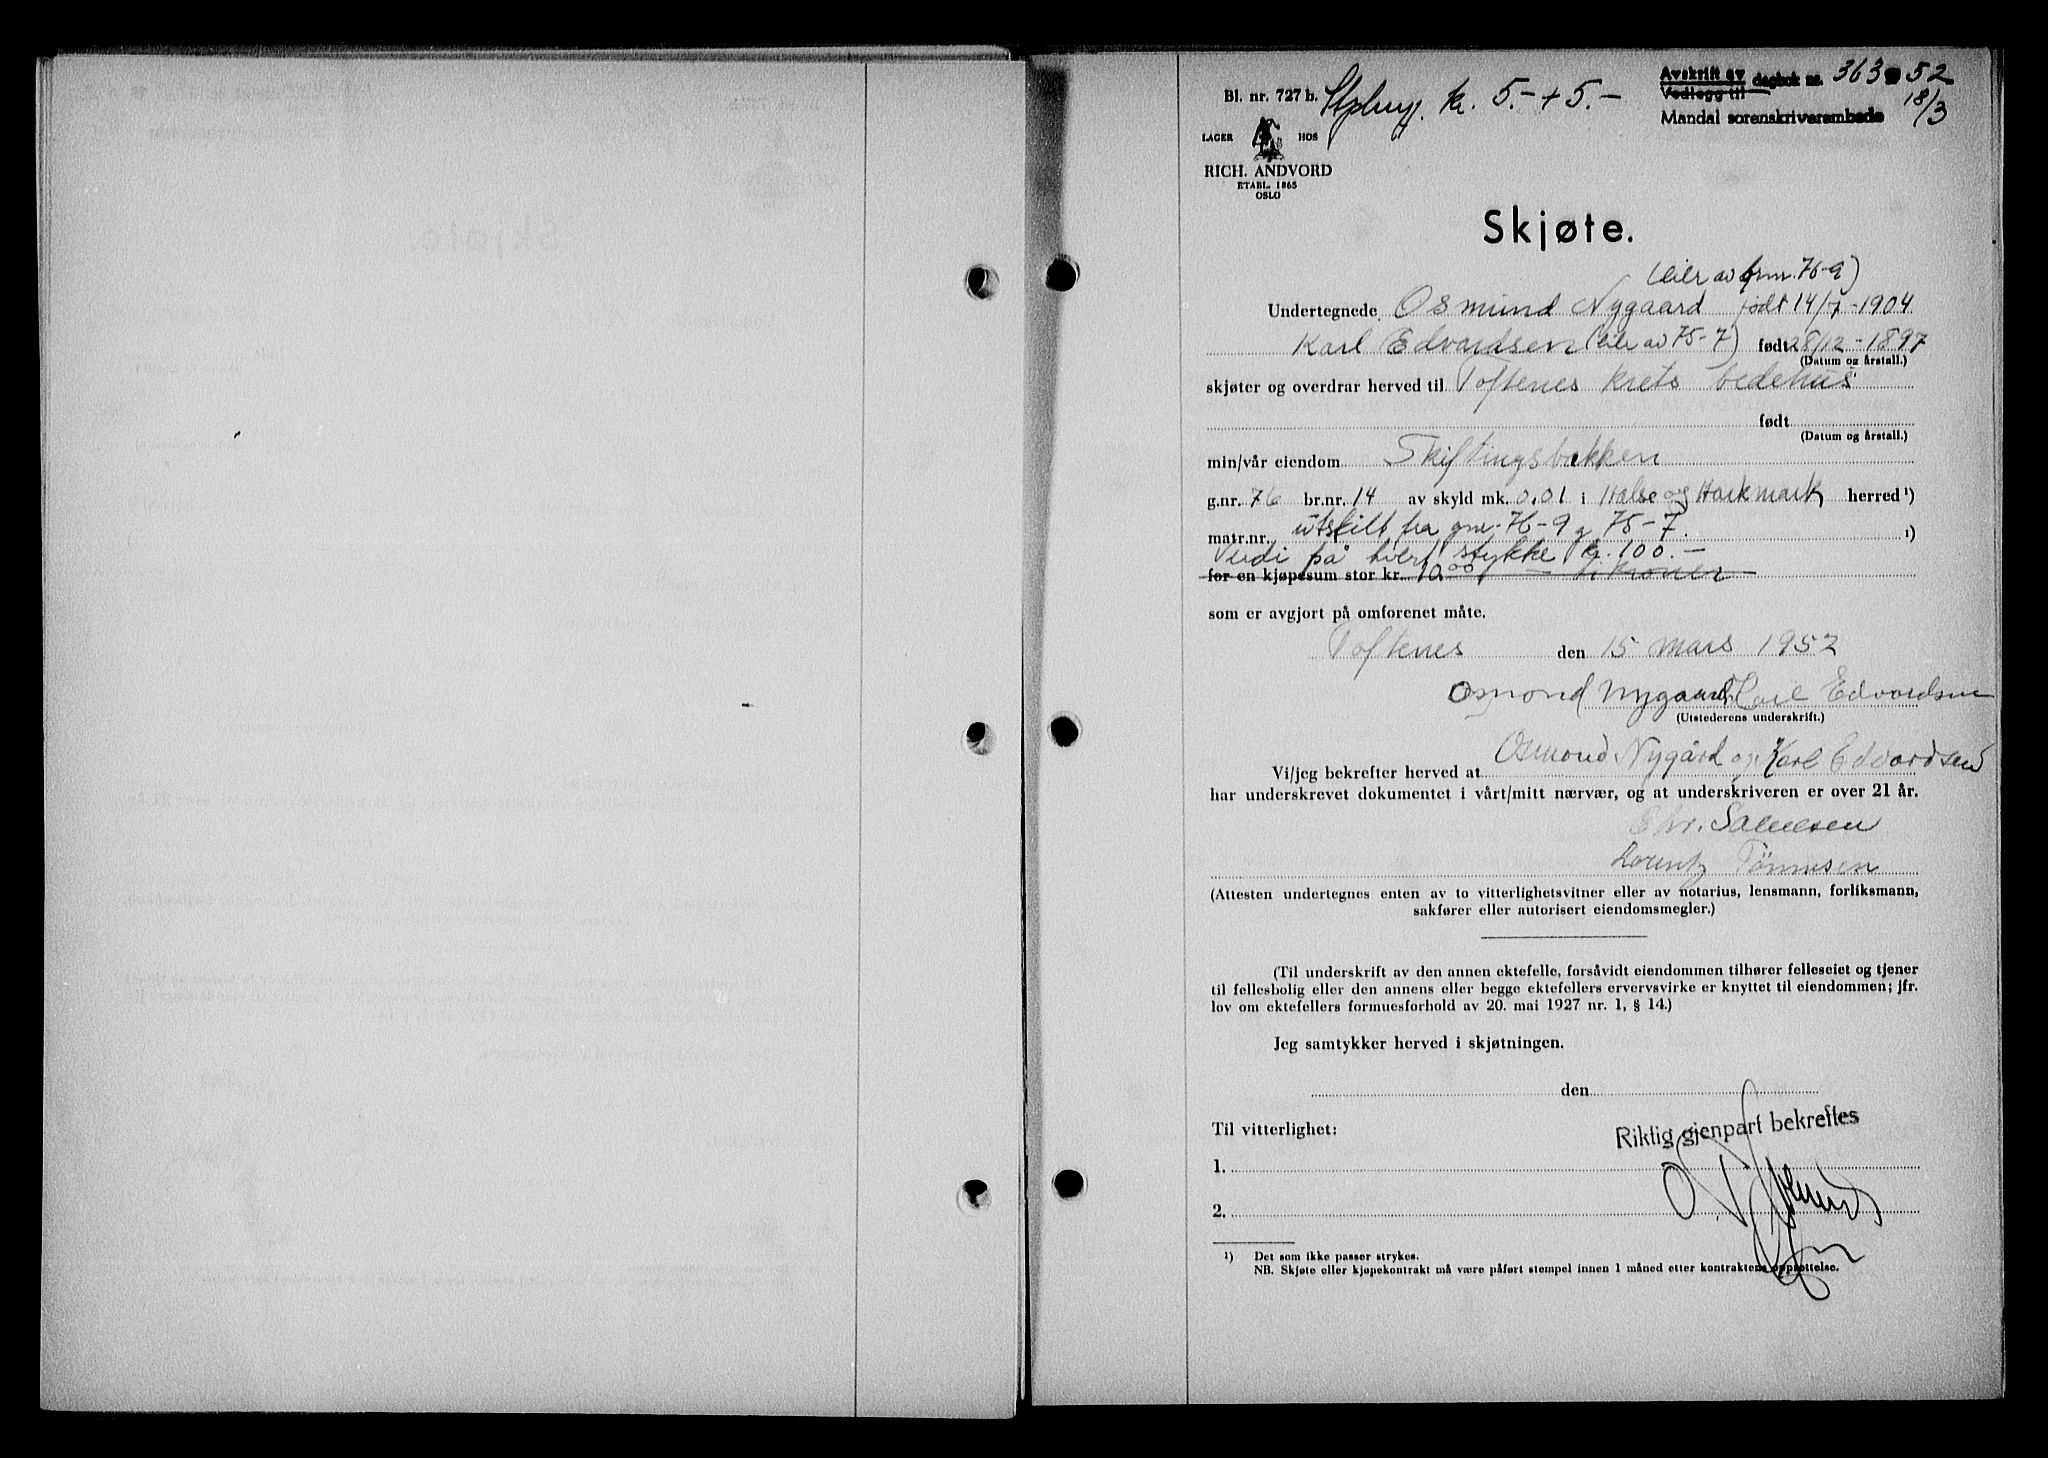 Avskrift av
Vedlegg til dagbok nr. 363 52
Mandal sorenskriverembede 18/3
Bl. nr. 727 b. kr. 5.- + 5.-
LAGER HOS
RICH. ANDVORD
ETABL. 1865
OSLO
Skjøte.
(eier av 76-9)
Undertegnede Osmund Nygaard født 14/7-1904
Karl Edvardsen (eier av 75-7) født 28/12-1897
(Datum og årstall.)
skjøter og overdrar herved til Toftenes krets bedehus
født
(Datum og årstall.)
min/vår eiendom Skiftingsbakken
g.nr. 76 br.nr. 14 av skyld mk. 0.01 i Halse og Harkmark herred ¹)
matr.nr. utskilt fra gnr. 76-9 og 75-7. ¹)
Verdi på hvert stykke kr. 100.-
for en kjøpesum stor kr. 10.00 ti kroner
som er avgjort på omforenet måte.
Toftenes den 15 mars 1952
Osmond Nygaard Karl Edvardsen
(Utstederens underskrift.)
Vi/jeg bekrefter herved at Osmond Nygård og Karl Edvardsen
har underskrevet dokumentet i vårt/mitt nærvær, og at underskriveren er over 21 år.
Chr. Salvesen
Lorentz Tønnesen
(Attesten undertegnes enten av to vitterlighetsvitner eller av notarius, lensmann, forliksmann,
sakfører eller autorisert eiendomsmegler.)
(Til underskrift av den annen ektefelle, forsåvidt eiendommen tilhører felleseiet og tjener
til fellesbolig eller den annens eller begge ektefellers ervervsvirke er knyttet til eiendommen; jfr.
lov om ektefellers formuesforhold av 20. mai 1927 nr. 1, § 14.)
Jeg samtykker herved i skjøtningen.
den
Til vitterlighet:
Riktig gjenpart bekreftes
1.
2.
¹) Det som ikke passer strykes.
NB. Skjøte eller kjøpekontrakt må være påført stempel innen 1 måned etter kontraktens opprettelse.